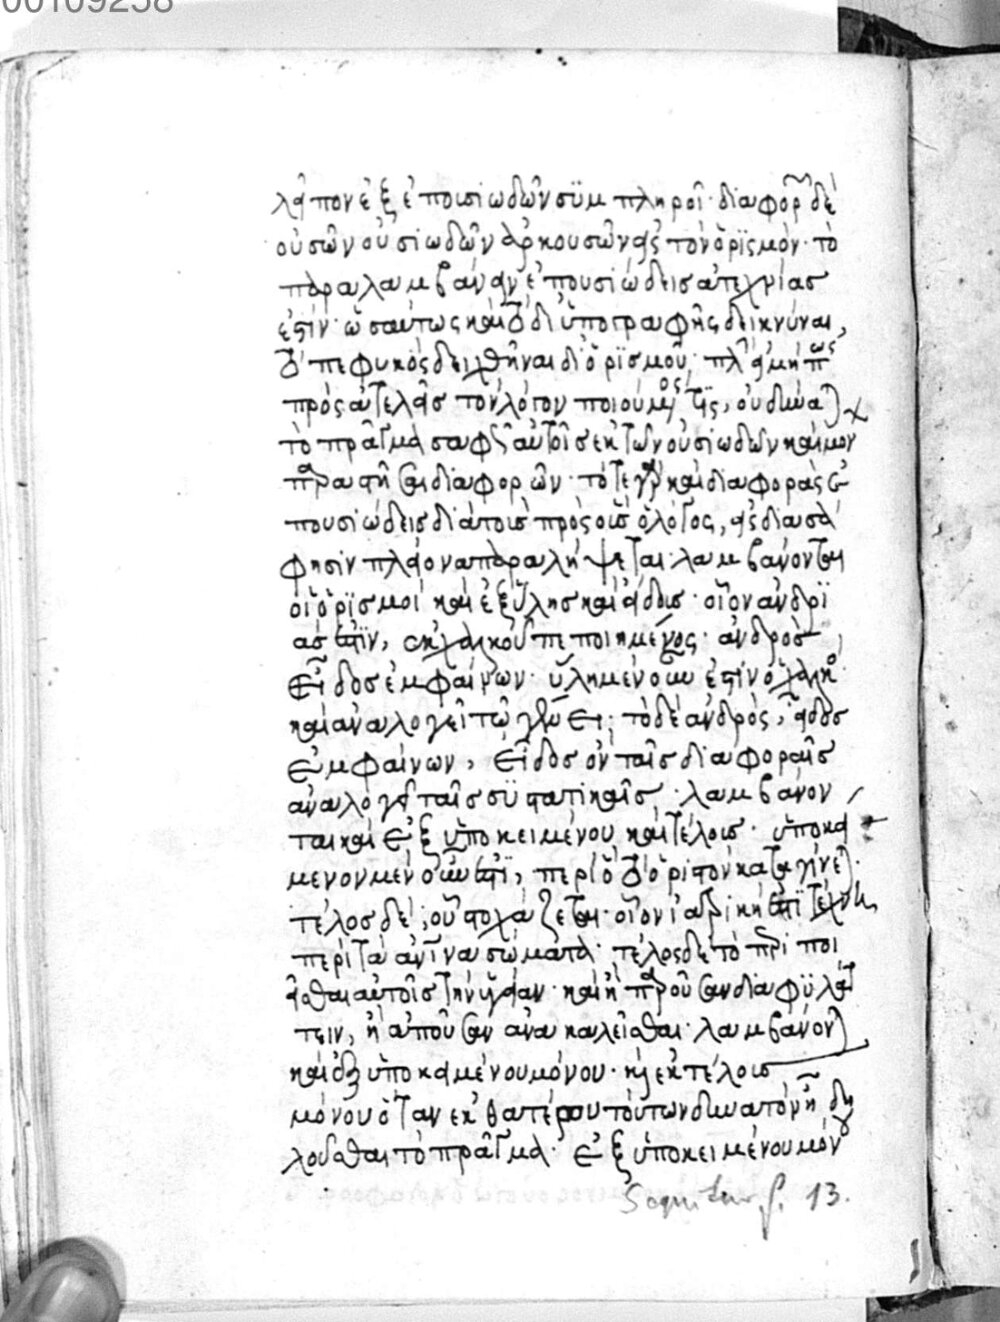 00109258
λεῖπον ἐξ ἐπουσιωδῶν συμπληροῖ· διαφορῶν δὲ
οὐσῶν οὐσιωδῶν ἀρκουσῶν εἰς τὸν ὁρισμὸν· τὸ
παραλαμβάνειν ἐπουσιώδεις ἀτεχνίας
ἐστίν· ὡσαύτως καὶ τὸ δι' ὑπογραφῆς δεικνύναι,
τὸ πεφυκὸς δειχθῆναι δι' ὁρισμοῦ· πλὴν εἰ μήπως
πρὸς ἀτελεῖς τὸν λόγον ποιούμενός τις, οὐ δύναται
τὸ πρᾶγμα σαφηνίσαι αὐτοῖς ἐκ τῶν οὐσιωδῶν καὶ μόνον
παραστῆσαι διαφορῶν· τότε γὰρ καὶ διαφορὰς ἐ
πουσιώδεις δι' ἀτελεῖς πρὸς οὓς ὁ λόγος, εἰς διασά
φησιν πλείονα παραλήψεται· λαμβάνονται
οἱ ὁρισμοὶ καὶ ἐξ ὕλης καὶ εἴδους· οἷον ἀνδρι
άς ἐστιν, ἐκ χαλκοῦ πεποιημένος· ἀνδρὸς
εἶδος ἐμφαίνων· ὕλη μὲν οὖν ἐστὶν ὁ χαλκὸς
καὶ ἀναλογεῖ τῷ γένει· τὸ δὲ ἀνδρὸς, εἶδος
ἐμφαίνων, εἶδος ὃν ταῖς διαφοραῖς
ἀναλογεῖ ταῖς συστατικαῖς· λαμβάνον
ται καὶ ἐξ ὑποκειμένου καὶ τέλους· ὑποκεί
μενον μὲν οὖν ἐστι, περὶ ὃ τὸ ὁριστὸν καταγίνεται·
τέλος δὲ, οὗ στοχάζεται· οἷον ἰατρική ἐστι τέχνη
περὶ τὰ ἀνθρώπινα σώματα· τέλος δὲ τὸ περιποι
εῖσθαι αὐτοῖς τὴν ὑγείαν· καὶ ἢ παροῦσαν διαφυλάτ
τειν, ἢ ἀποῦσαν ἀνακαλεῖσθαι· λαμβάνονται
καὶ ἐξ ὑποκειμένου μόνου· καὶ ἐκ τέλους
μόνου ὅταν ἐκ θατέρου τούτων δυνατὸν ᾖ δη
λοῦσθαι τὸ πρᾶγμα· ἐξ ὑποκειμένου μόνου
Sequitur f. 13.